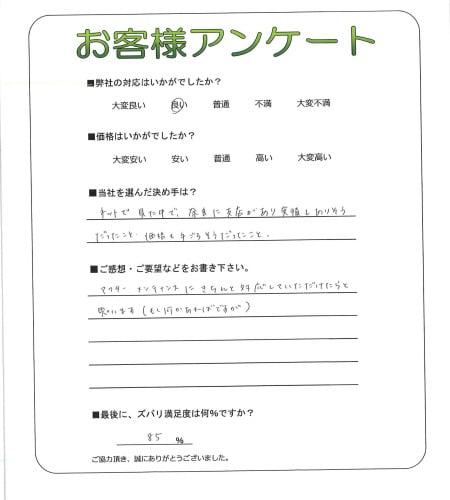 お客様アンケート
■弊社の対応はいかがでしたか？
大変良い 良い 普通 不満 大変不満
■価格はいかがでしたか？
大変安い 安い 普通 高い 大変高い
■当社を選んだ決め手は？
ネットで見た中で、奈良に支店があり実績もありそう
だったこと、価格も手ごろそうだったこと。
■ご感想・ご要望などをお書き下さい。
アフターメンテナンスにきちんと対応していただけたらと
思います（もし何かあればですが）
■最後に、ズバリ満足度は何%ですか？
85 %
ご協力頂き、誠にありがとうございました。